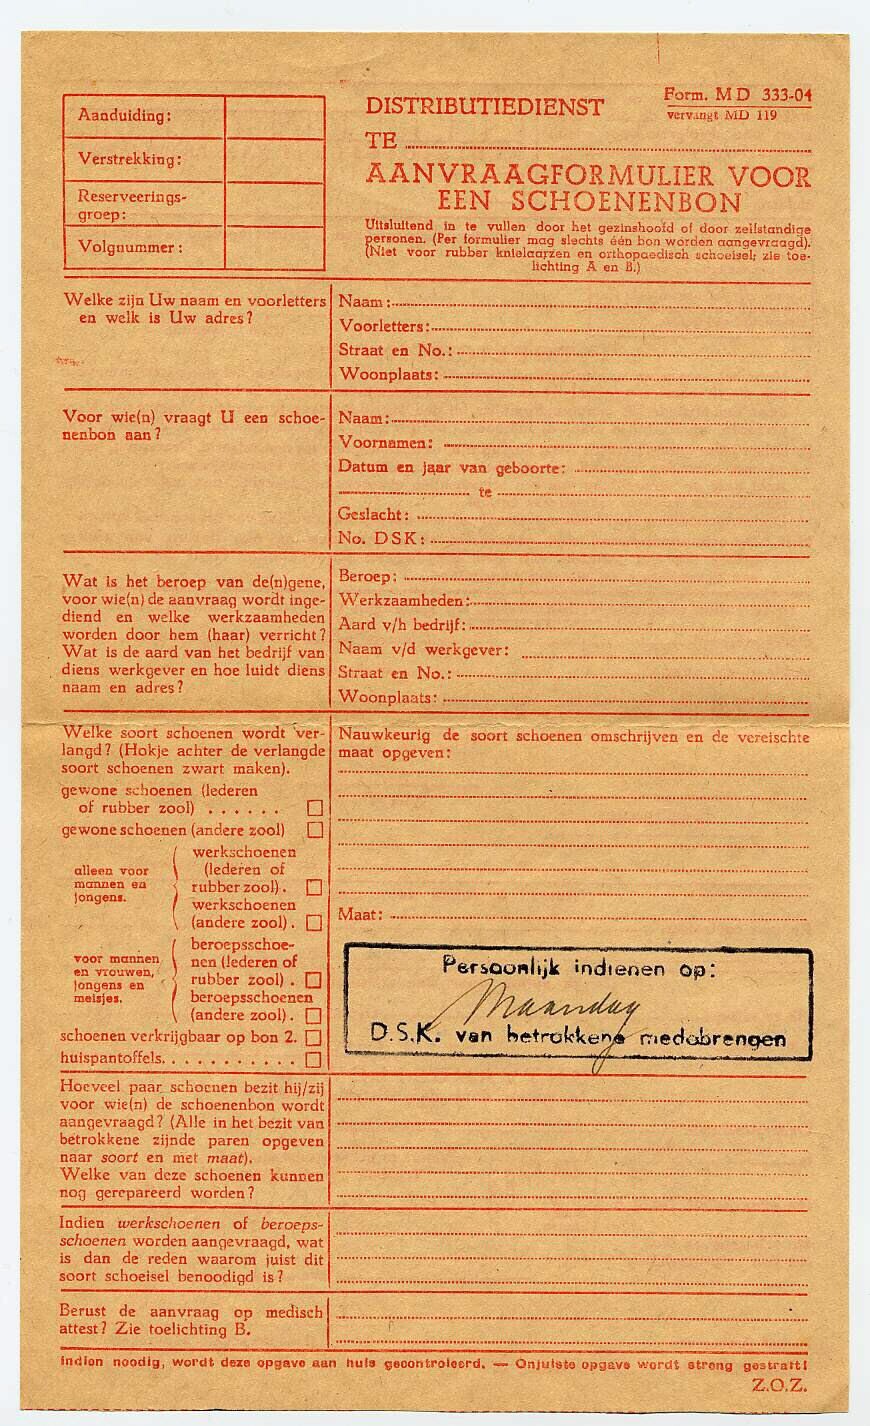 Aanduiding:
Verstrekking:
Reserveerings-
groep:
Volgnummer:
DISTRIBUTIEDIENST
Form. MD 333-04
vervangt MD 119
TE
AANVRAAGFORMULIER VOOR
EEN SCHOENENBON
Uitsluitend in te vullen door het gezinshoofd of door zelfstandige
personen. (Per formulier mag slechts één bon worden aangevraagd).
(Niet voor rubber knielaarzen en orthopaedisch schoeisel; zie toe-
lichting A en B.)
Welke zijn Uw naam en voorletters
en welk is Uw adres?
Naam:
Voorletters:
Straat en No.:
Woonplaats:
Voor wie(n) vraagt U een schoe-
nenbon aan?
Naam:
Voornamen:
Datum en jaar van geboorte:
te
Geslacht:
No. DSK:
Wat is het beroep van de(n)gene,
voor wie(n) de aanvraag wordt inge-
diend en welke werkzaamheden
worden door hem (haar) verricht?
Wat is de aard van het bedrijf van
diens werkgever en hoe luidt diens
naam en adres?
Beroep:
Werkzaamheden:
Aard v/h bedrijf:
Naam v/d werkgever:
Straat en No.:
Woonplaats:
Welke soort schoenen wordt ver-
langd? (Hokje achter de verlangde
soort schoenen zwart maken).
gewone schoenen (lederen
of rubber zool) . . . . . .
gewone schoenen (andere zool)
alleen voor
mannen en
jongens.
werkschoenen
(lederen of
rubber zool) .
werkschoenen
(andere zool) .
voor mannen
en vrouwen,
jongens en
meisjes.
beroepsschoe-
nen (lederen of
rubber zool) .
beroepsschoenen
(andere zool) .
schoenen verkrijgbaar op bon 2.
huispantoffels. . . . . . . . . . .
Nauwkeurig de soort schoenen omschrijven en de vereischte
maat opgeven:
Maat:
Persoonlijk indienen op:
Maandag
D.S.K. van betrokkene medebrengen
Hoeveel paar schoenen bezit hij/zij
voor wie(n) de schoenenbon wordt
aangevraagd? (Alle in het bezit van
betrokkene zijnde paren opgeven
naar soort en met maat).
Welke van deze schoenen kunnen
nog gerepareerd worden?
Indien werkschoenen of beroeps-
schoenen worden aangevraagd, wat
is dan de reden waarom juist dit
soort schoeisel benoodigd is?
Berust de aanvraag op medisch
attest? Zie toelichting B.
Indien noodig, wordt deze opgave aan huis gecontroleerd. — Onjuiste opgave wordt streng gestraft!
Z.O.Z.